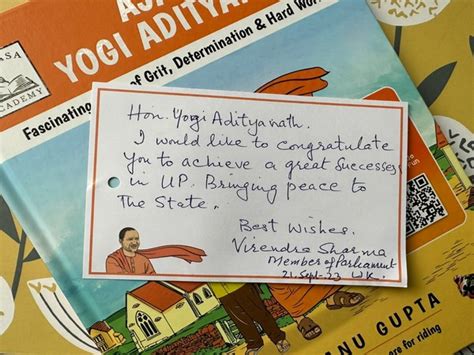 AJA
YOGI ADITYA
Fascinating of Grit, Determination & Hard Wor
ASA
ACADEMY
Hon. Yogi Adityanath.
I would like to congratulate
you to achieve a great Successes
in UP. Bringing peace to
The State.
Best Wishes.
Virendra Sharma
Member of Parliament
21-Sept-23 UK.
NU GUPTA
re for riding